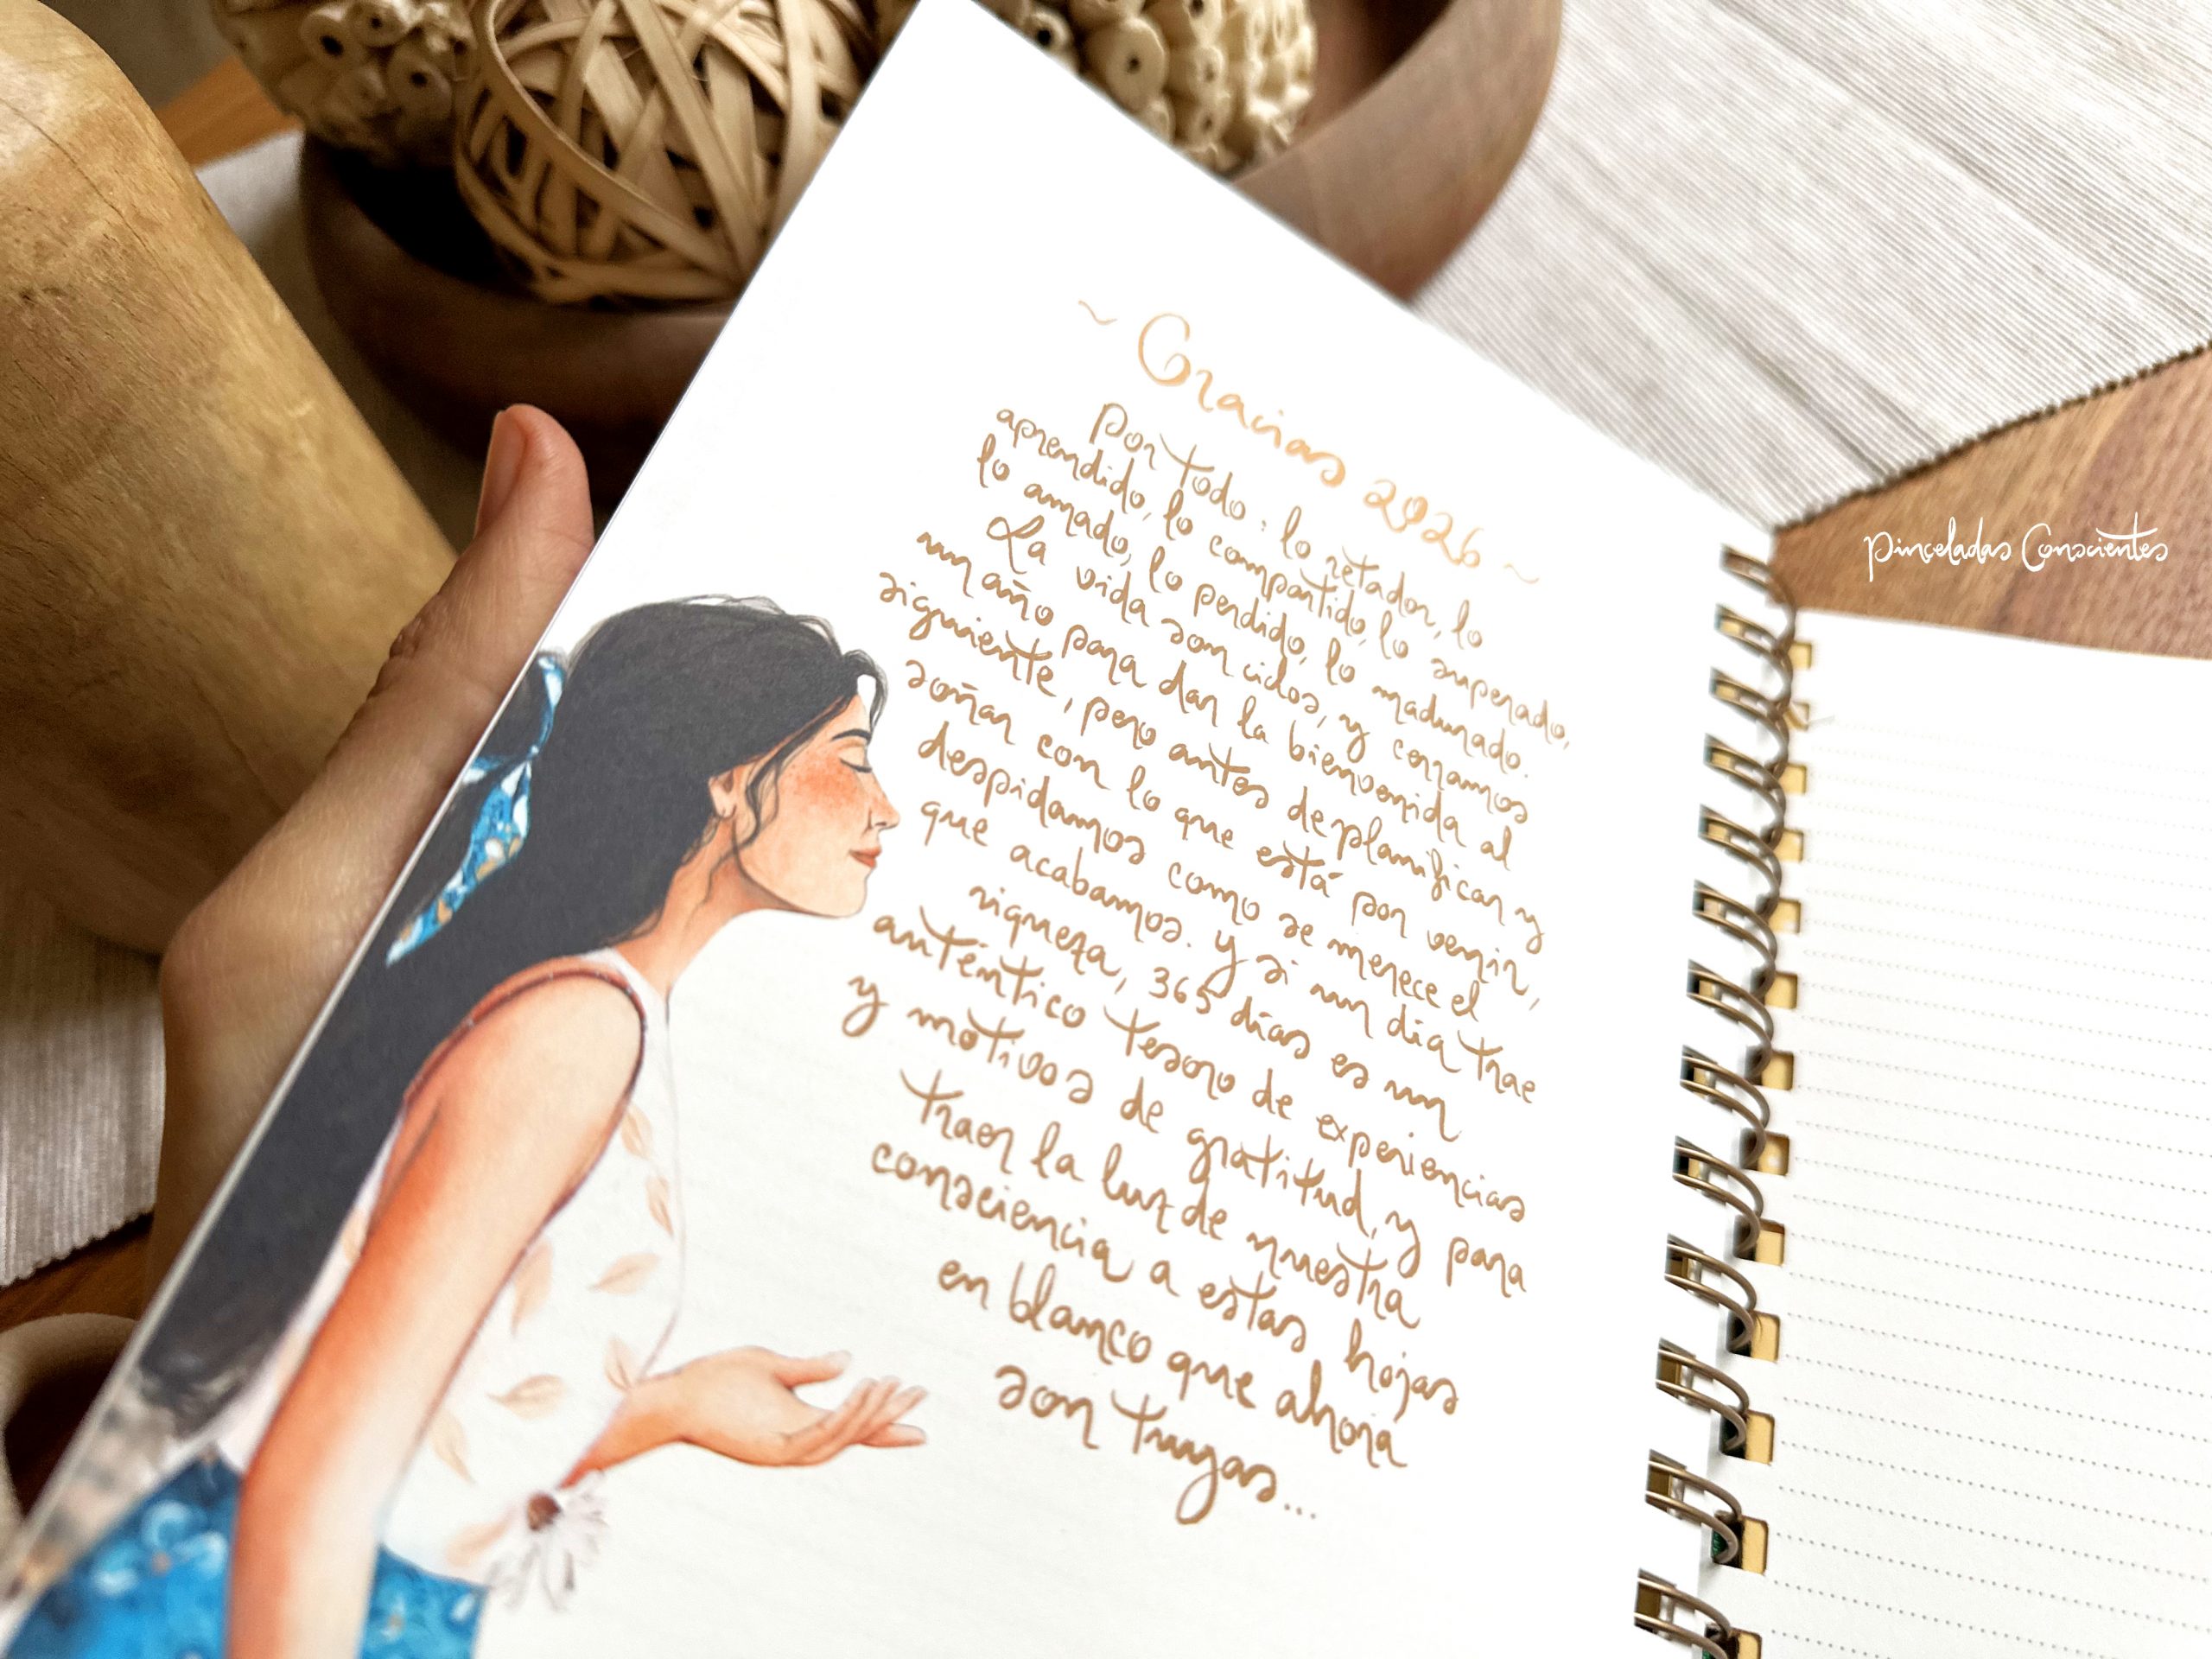 ~ Gracias 2026 ~
Por todo: lo retador, lo
aprendido, lo compartido, lo superado,
lo amado, lo perdido, lo madurado.
La vida son ciclos, y cerramos
un año para dar la bienvenida al
siguiente, pero antes de planificar y
soñar con lo que está por venir,
despidamos como se merece el
que acabamos. Y si un día trae
riqueza, 365 días es un
auténtico tesoro de experiencias
y motivos de gratitud, y para
traer la luz de nuestra
consciencia a estas hojas
en blanco que ahora
son tuyas...
Pinceladas Conscientes